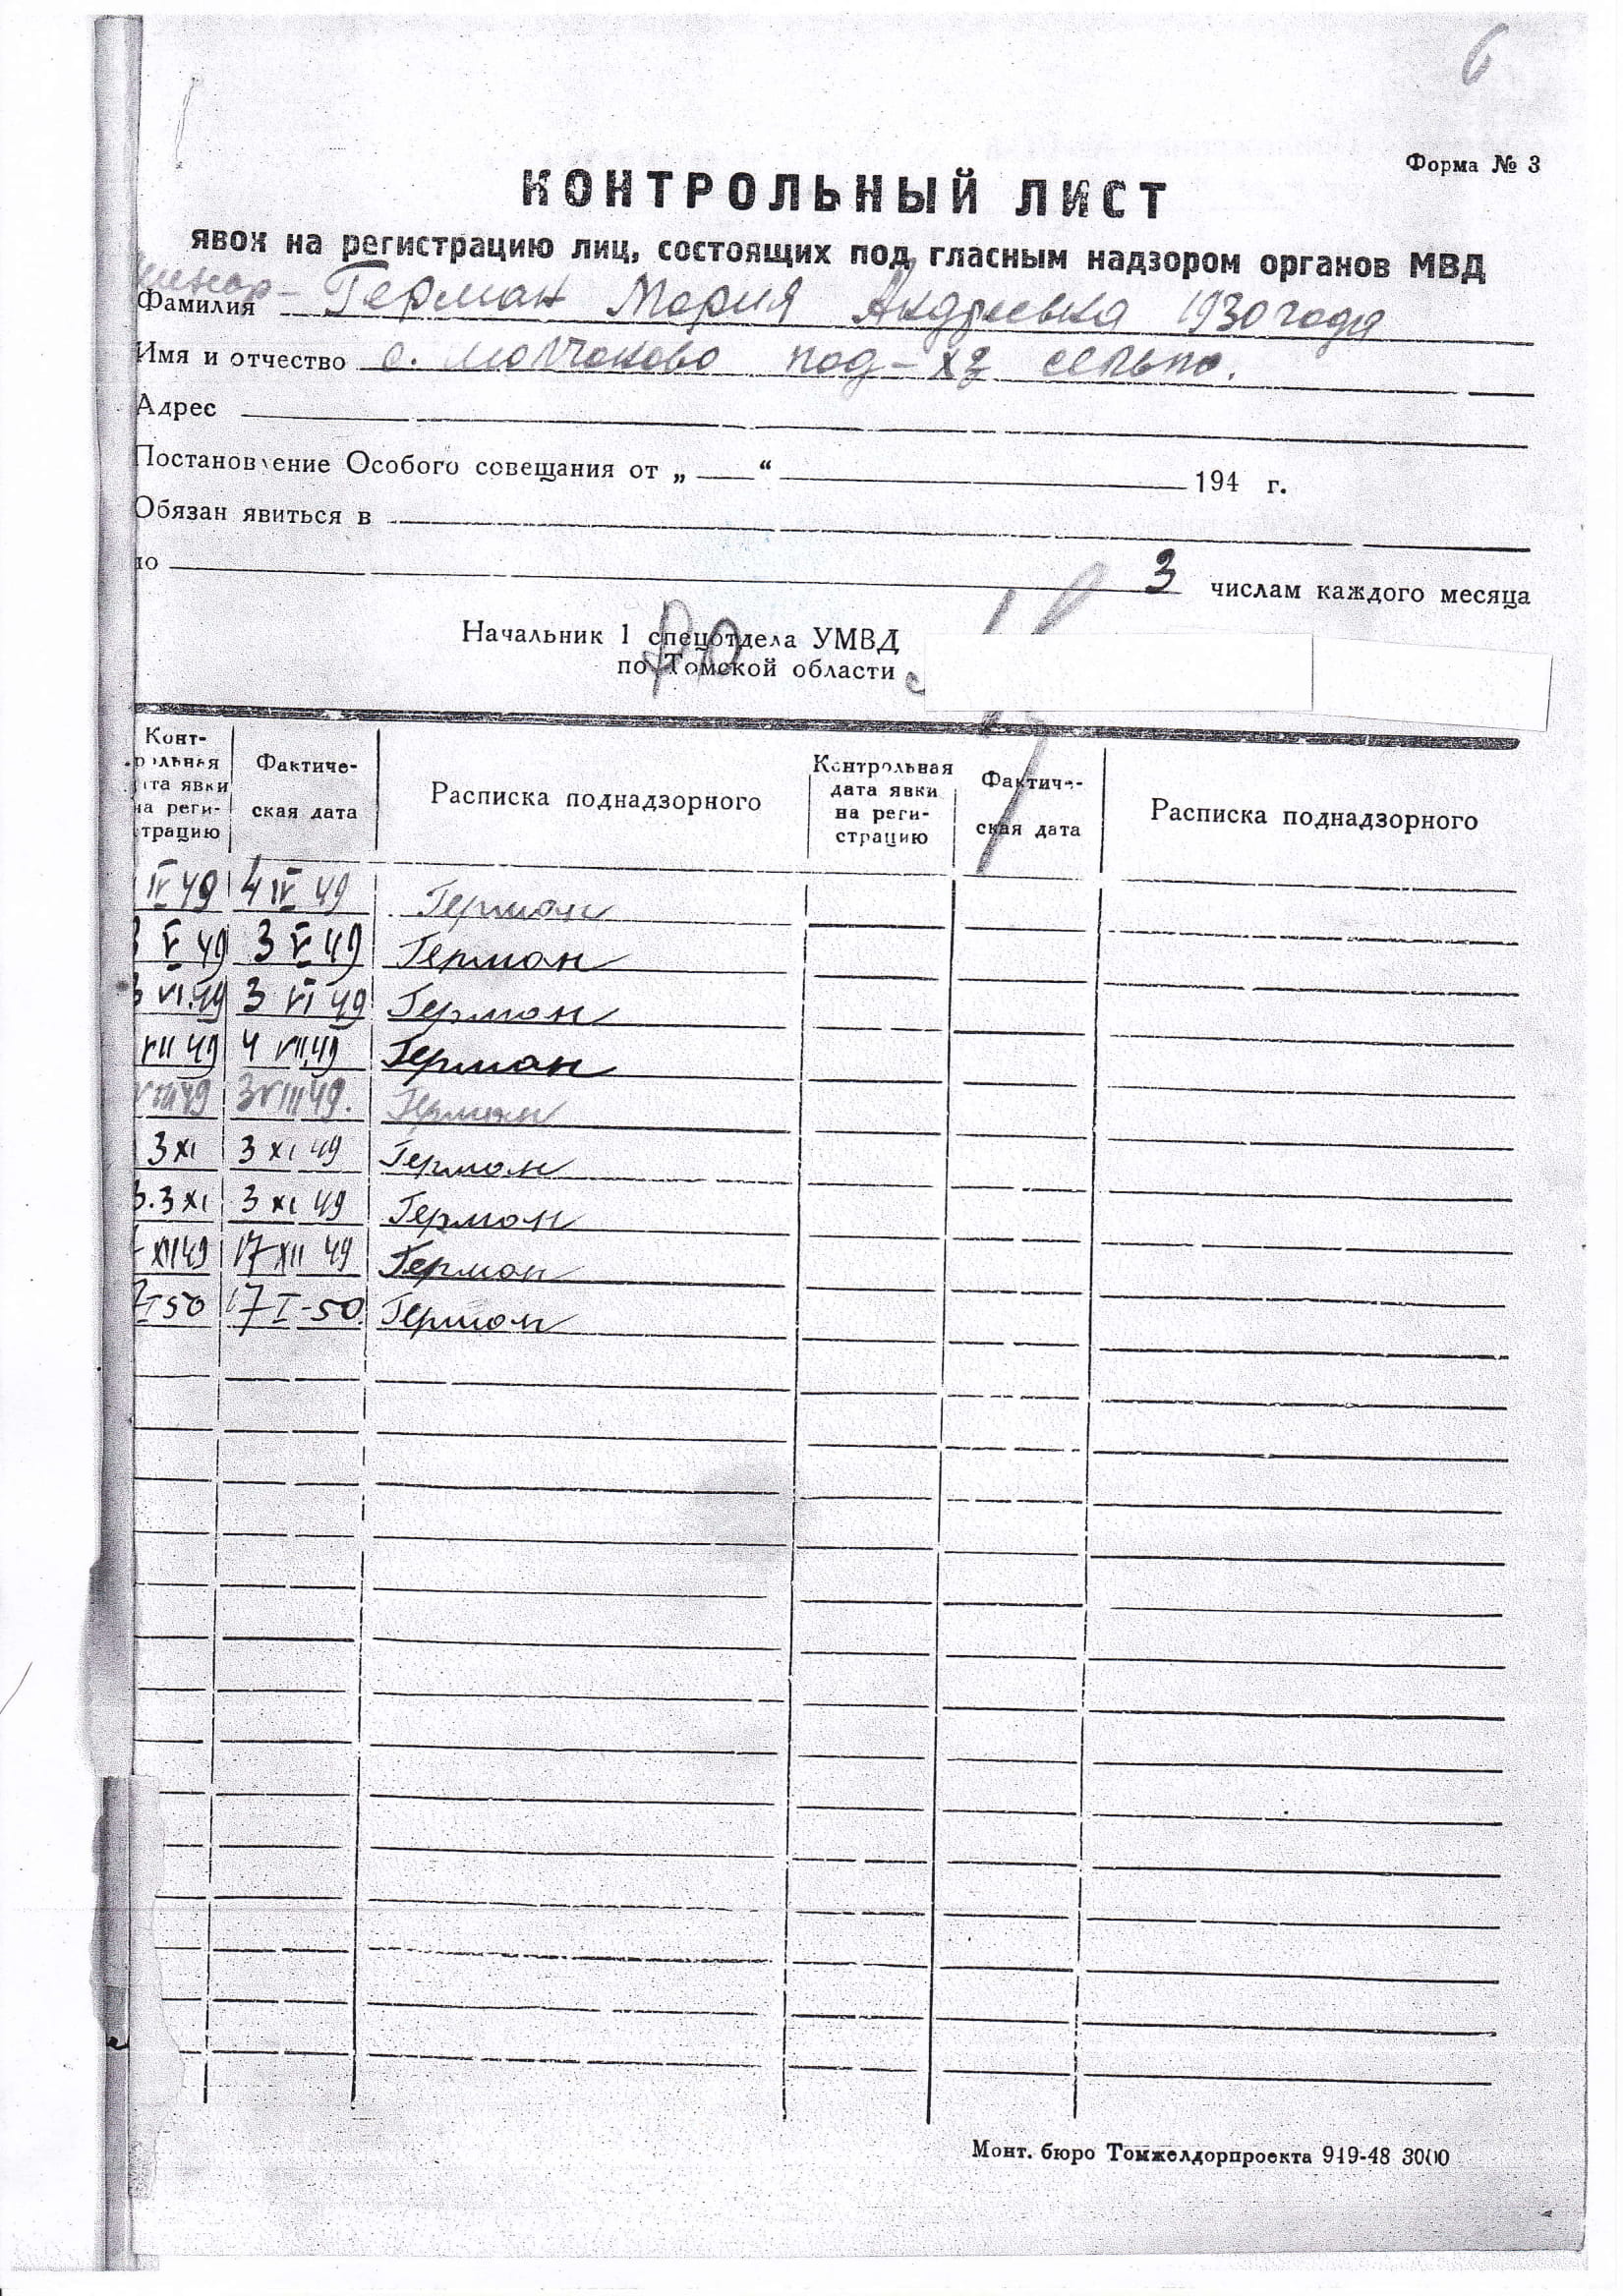 6
Форма № 3
КОНТРОЛЬНЫЙ ЛИСТ
явок на регистрацию лиц, состоящих под гласным надзором органов МВД
Фамилия Герман Мария Андреевна 1930 года
Имя и отчество с. Молчаново под-хз сельпо.
Адрес
Постановление Особого совещания от „ “ 194 г.
Обязан явиться в
по 3 числам каждого месяца
Начальник 1 спецотдела УМВД
по Томской области
РО
Конт-
рольная
дата явки
на реги-
страцию
Фактиче-
ская дата
Расписка поднадзорного
Контрольная
дата явки
на реги-
страцию
Фактиче-
ская дата
Расписка поднадзорного
IV 49 4 IV 49 Герман
3 V 49 3 V 49 Герман
3 VI.49 3 VI 49 Герман
VII 49 4 VII 49 Герман
VIII 49 3 VIII 49. Герман
3 XI 3 XI 49 Герман
3.3 XI 3 XI 49 Герман
XII 49 17 XII 49 Герман
7 I 50 17 I-50. Герман
Монт. бюро Томжелдорпроекта 919-48 3000